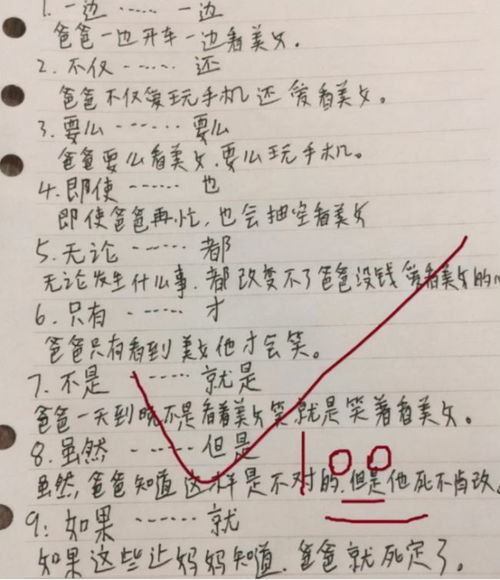 1. 一边 …… 一边
爸爸一边开车一边看美女。
2. 不仅 …… 还
爸爸不仅爱玩手机还爱看美女。
3. 要么 …… 要么
爸爸要么看美女,要么玩手机。
4. 即使 …… 也
即使爸爸再忙,也会抽空看美女
5. 无论 …… 都
无论发生什么事,都改变不了爸爸没钱爱看美女的
6. 只有 …… 才
爸爸只有看到美女他才会笑。
7. 不是 …… 就是
爸爸一天到晚不是看着美女笑就是笑着看美女。
8. 虽然 …… 但是
虽然,爸爸知道这样是不对的,但是他死不肯改。
9: 如果 …… 就
如果这些让妈妈知道,爸爸就死定了。
100